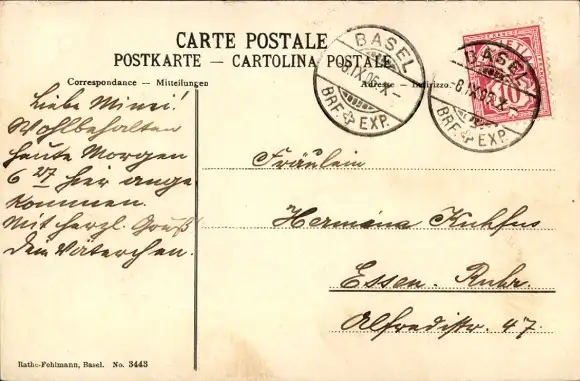 CARTE POSTALE
POSTKARTE — CARTOLINA POSTALE
Correspondance — Mitteilungen
Adresse — Indirizzo.
BASEL
8.IX.06.X-
BRF. EXP.
BASEL
8.IX.06.X-
BRF. EXP.
HELVETIA
10
Liebe Mimi!
Wohlbehalten
heute Morgen
6 27 hier ange
kommen.
Mit herzl. Gruß
Dein Väterchen.
Fräulein
Hermina Kuhfus
Essen. Ruhr.
Alfredistr. 47.
Rathe-Fehlmann, Basel. No. 3443